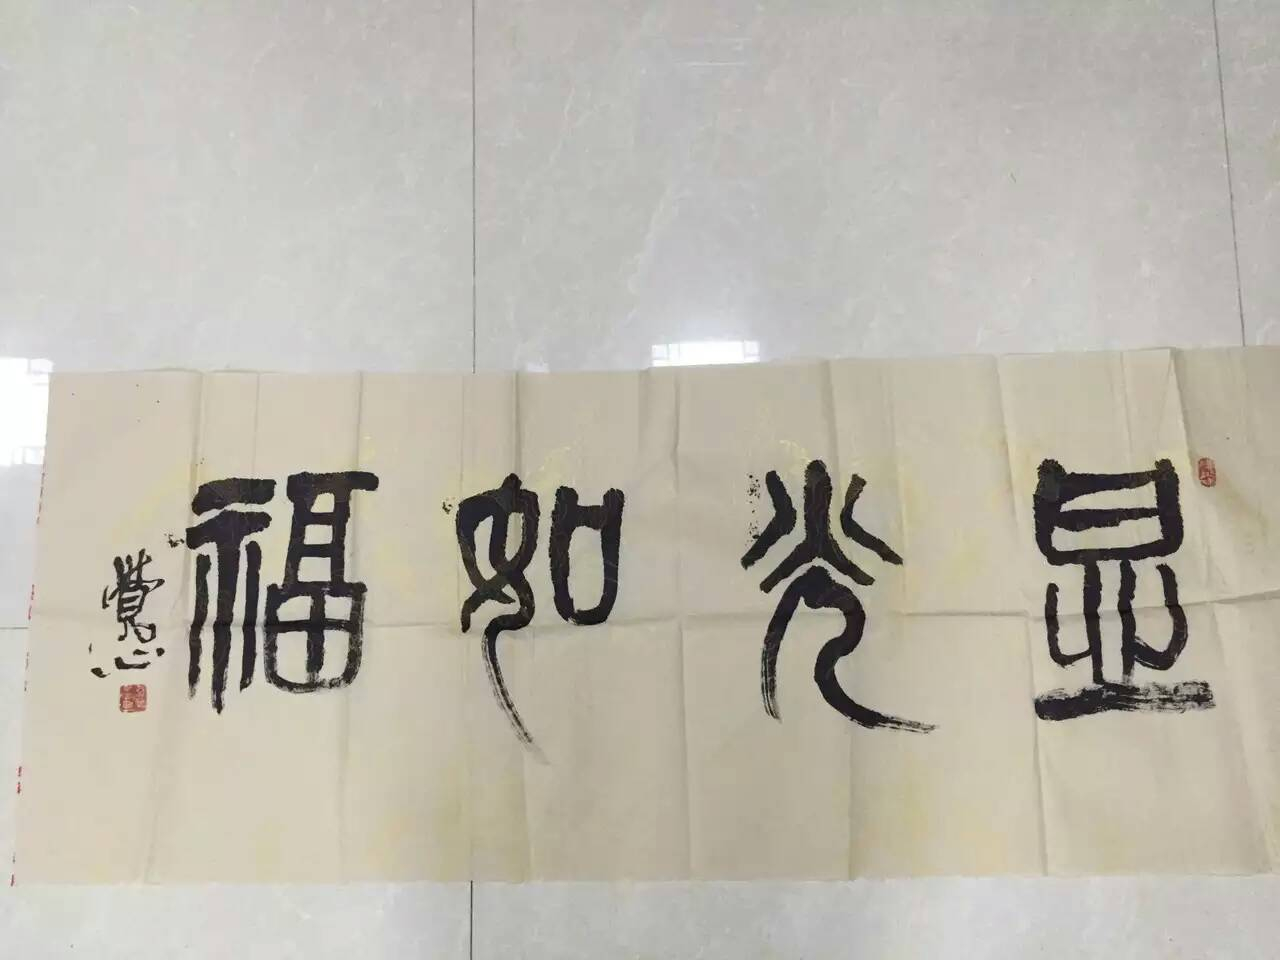 显光如福
覺心